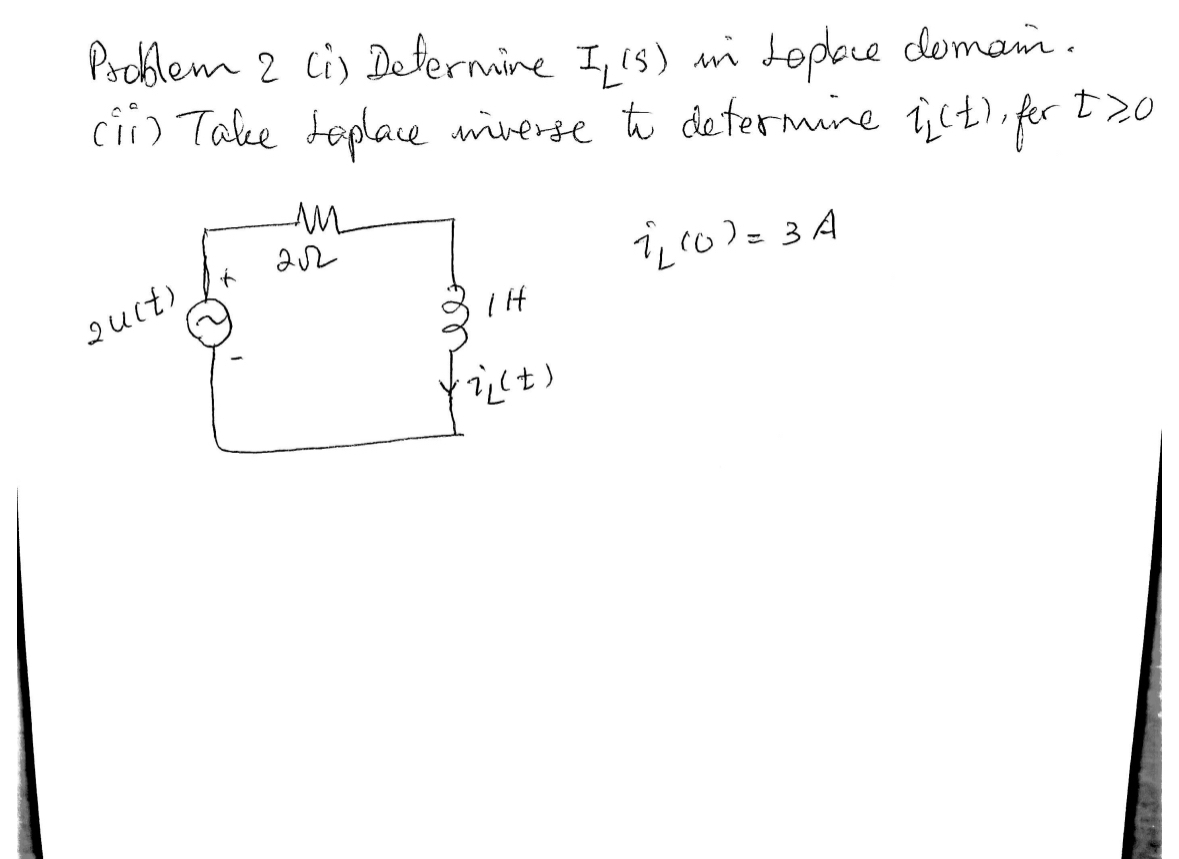 Problem 2 (i) Determine I_L(s) in Laplace domain.
(ii) Take Laplace inverse to determine i_L(t), for t≥0
2Ω
i_L(0) = 3A
+
2u(t)
1H
-
i_L(t)